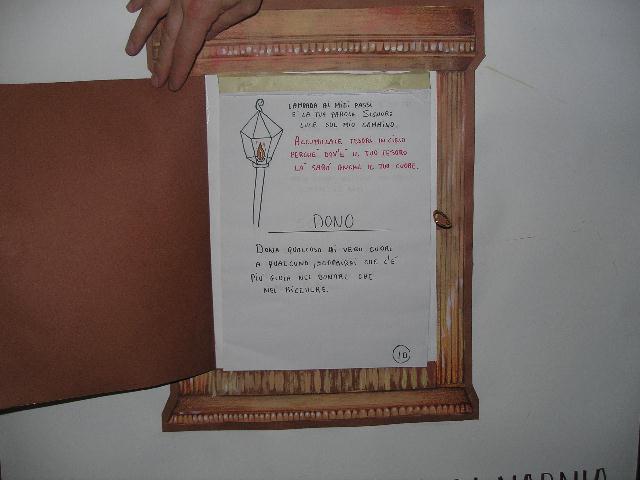 LAMPADA AI MIEI PASSI
È LA TUA PAROLA SIGNORE
LUCE SUL MIO CAMMINO.
ACCUMULATE TESORI IN CIELO
PERCHÉ DOV'È IL TUO TESORO
LÀ SARÀ ANCHE IL TUO CUORE.
DONO
DONA QUALCOSA DI VERO CUORE
A QUALCUNO, SCOPRIRAI CHE C'È
PIÙ GIOIA NEL DONARE CHE
NEL RICEVERE.
10
NARNIA